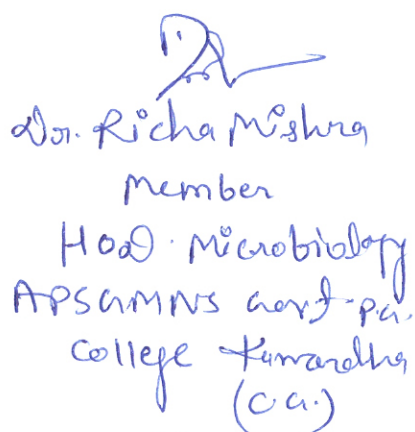 Dr. Richa Mishra
Member
HOD. Microbiology
APSGMNS Govt P.G.
College Kawardha
(C.G.)